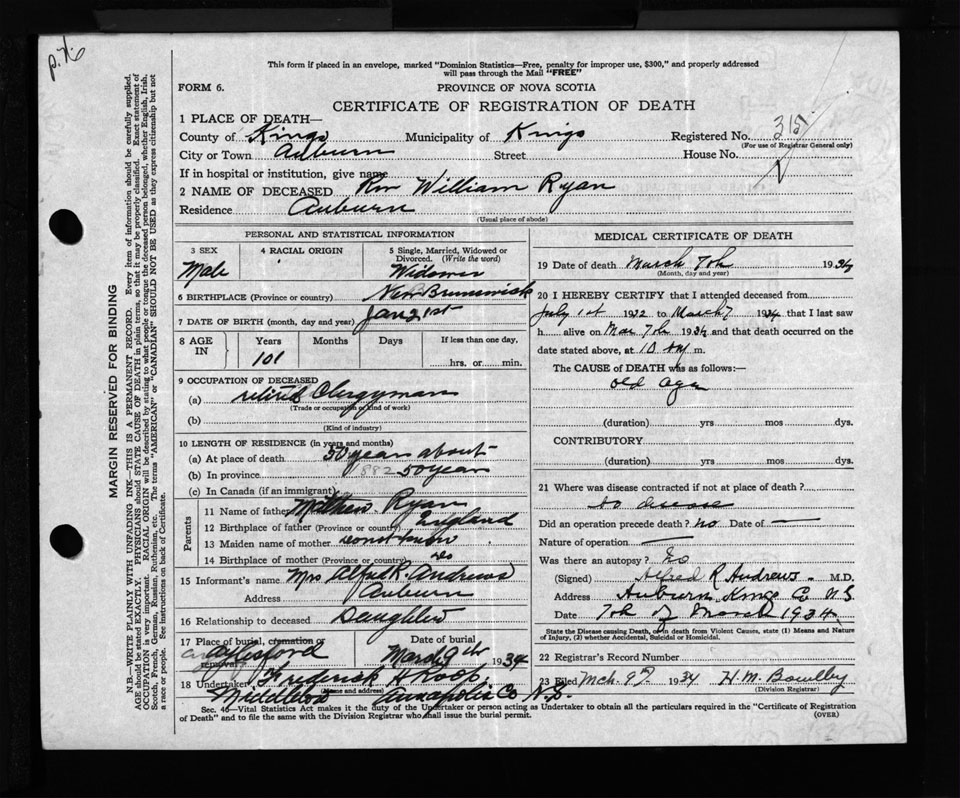 p. 76
This form if placed in an envelope, marked "Dominion Statistics—Free, penalty for improper use, $300," and properly addressed
will pass through the Mail "FREE"
FORM 6.
PROVINCE OF NOVA SCOTIA
CERTIFICATE OF REGISTRATION OF DEATH
1 PLACE OF DEATH—
County of Kings Municipality of Kings Registered No. 315
(For use of Registrar General only)
City or Town Auburn Street House No.
If in hospital or institution, give name
2 NAME OF DECEASED Rev William Ryan
Residence Auburn
(Usual place of abode)
PERSONAL AND STATISTICAL INFORMATION
3 SEX 4 RACIAL ORIGIN 5 Single, Married, Widowed or
Divorced. (Write the word)
Male Widower
6 BIRTHPLACE (Province or country) New Brunswick
7 DATE OF BIRTH (month, day and year) Jan 21st
8 AGE IN Years Months Days If less than one day,
101 hrs. or min.
9 OCCUPATION OF DECEASED
(a) retired Clergyman
(Trade or occupation or kind of work)
(b)
(Kind of industry)
10 LENGTH OF RESIDENCE (in years and months)
(a) At place of death 50 year about
(b) In province 1882 50 year
(c) In Canada (if an immigrant)
Parents
11 Name of father Matthew Ryan
12 Birthplace of father (Province or country) England
13 Maiden name of mother dont know
14 Birthplace of mother (Province or country) do
15 Informant's name Mrs Alfred R. Andrews
Address Auburn
16 Relationship to deceased Daughter
17 Place of burial, cremation or removal Date of burial
Aylesford March 9th 1934
18 Undertaker Frederick H Roop
(Name and address)
Middleton Annapolis Co N.S.
MEDICAL CERTIFICATE OF DEATH
19 Date of death March 7th 1934
(Month, day and year)
20 I HEREBY CERTIFY that I attended deceased from
July 1st 1932 to March 7 1934 that I last saw
h alive on Mar 7th 1934 and that death occurred on
date stated above, at 10 m.
The CAUSE of DEATH was as follows:—
old age
(duration) yrs mos dys.
CONTRIBUTORY
(duration) yrs mos dys.
21 Where was disease contracted if not at place of death?
no disease
Did an operation precede death? no Date of —
Nature of operation —
Was there an autopsy? no
(Signed) Alfred R Andrews M.D.
Address Auburn Kings Co N.S
Date 7th of March 1934
State the Disease causing Death, or in death from Violent Causes, state (1) Means and Nature
of Injury, (2) whether Accidental, Suicidal or Homicidal.
22 Registrar's Record Number
23 Filed Mch. 9th 1934 H. M. Bowlby
(Division Registrar)
Sec. 40—Vital Statistics Act makes it the duty of the Undertaker or person acting as Undertaker to obtain all the particulars required in the "Certificate of Registration
of Death" and to file the same with the Division Registrar who shall issue the burial permit.
(OVER)
MARGIN RESERVED FOR BINDING
N.B.—WRITE PLAINLY WITH UNFADING INK—THIS IS A PERMANENT RECORD. Every item of information should be carefully supplied.
AGE should be stated EXACTLY. PHYSICIANS should STATE CAUSE OF DEATH in plain terms, so that it may be properly classified. Exact statement of
OCCUPATION is very important. RACIAL ORIGIN will be described by stating to what people or tongue the deceased person belonged, whether English, Irish,
Scotch, French, German, Russian, Ruthenian, etc. The terms "AMERICAN" or "CANADIAN" SHOULD NOT BE USED as they express citizenship but not
a race or people. See instructions on back of Certificate.